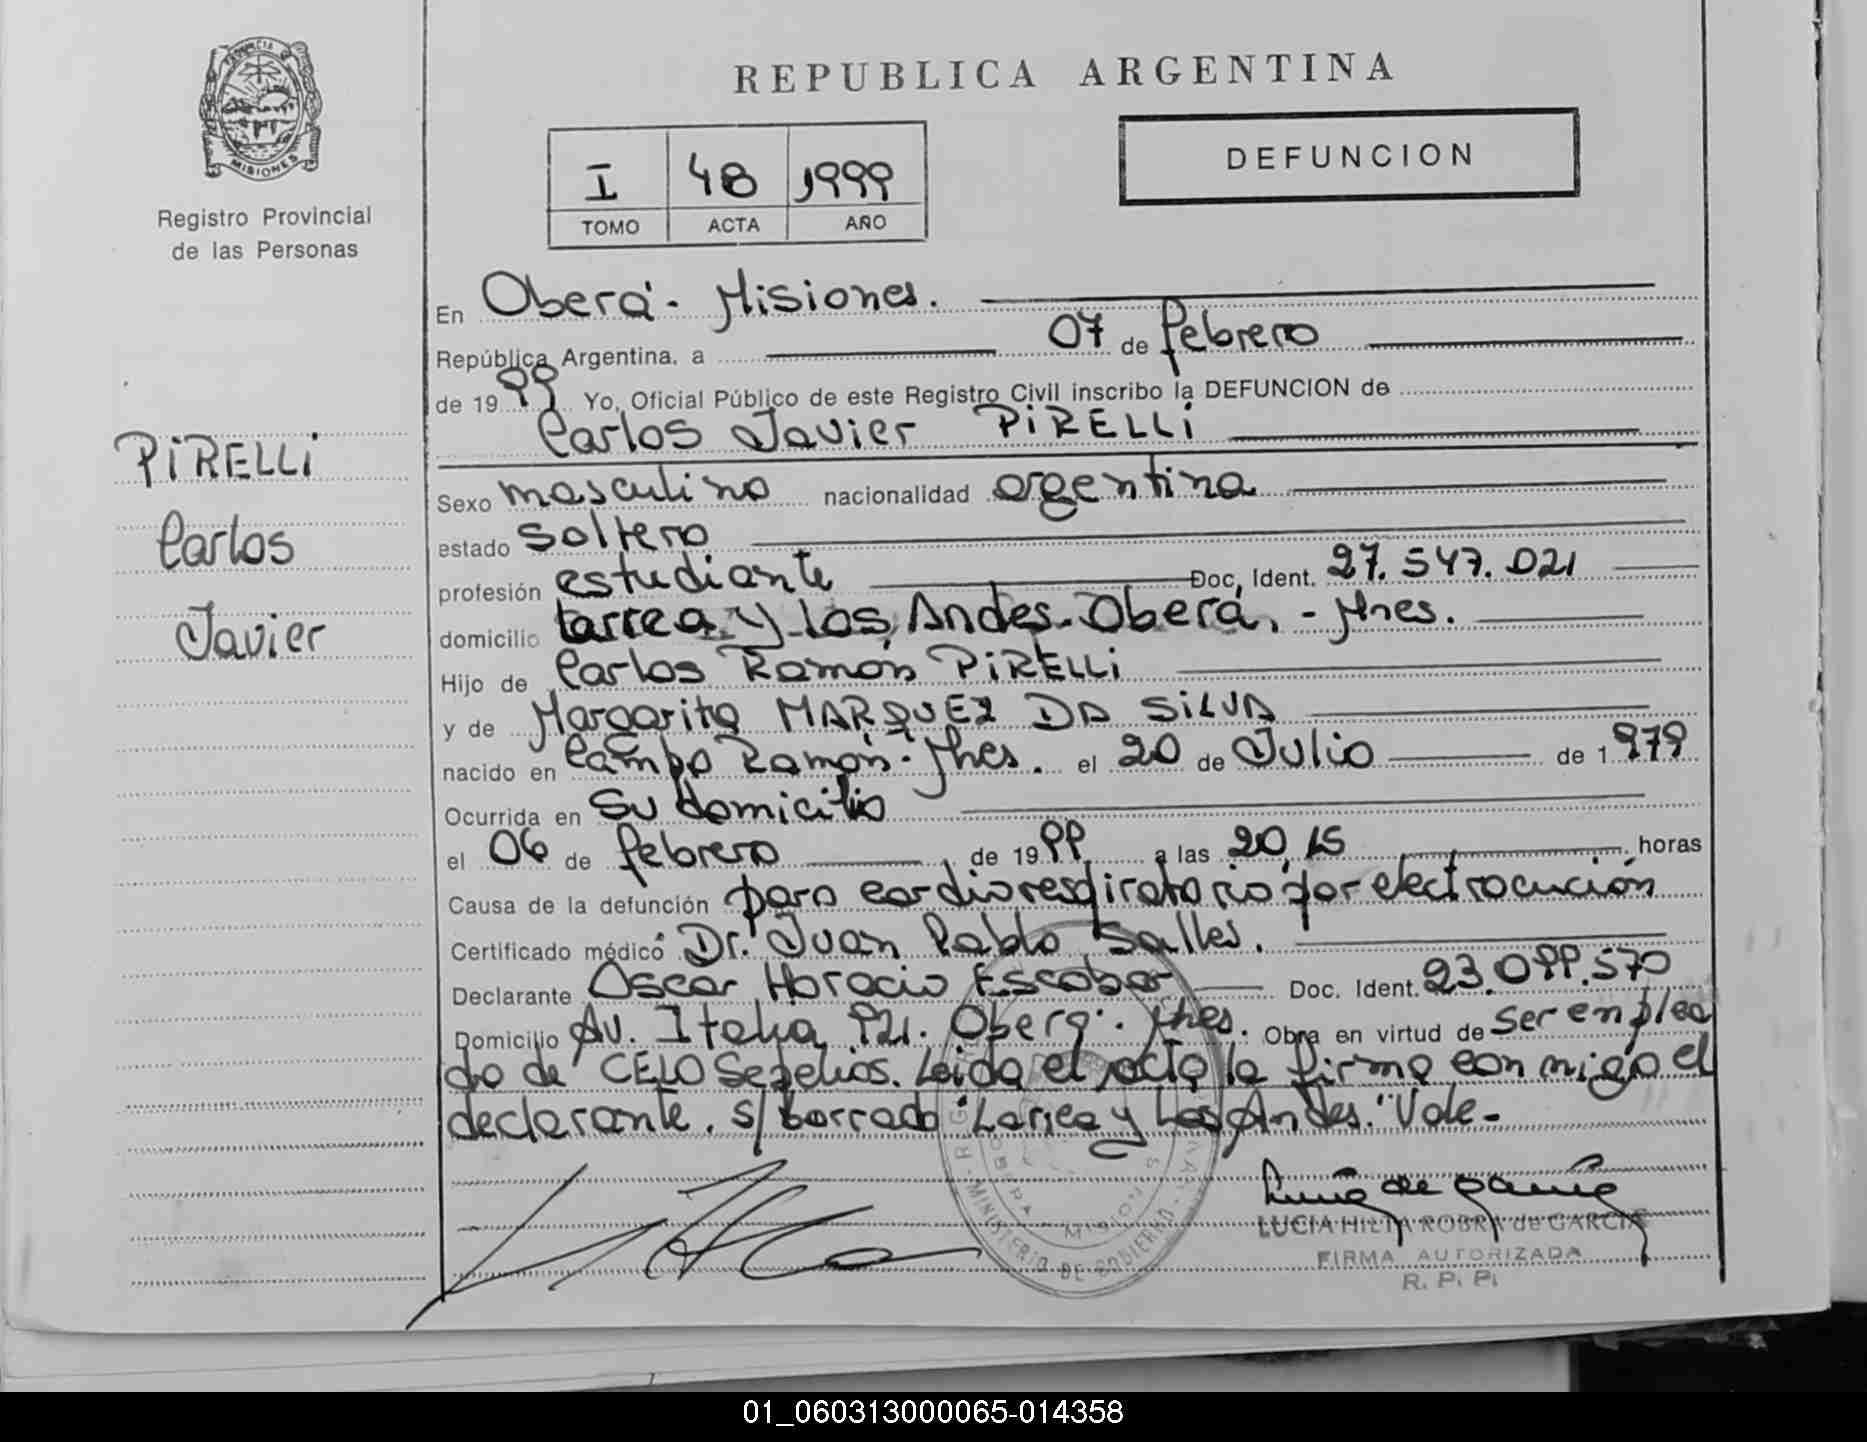 PROVINCIA DE
MISIONES
Registro Provincial
de las Personas
REPUBLICA ARGENTINA
DEFUNCION
I 48 1999
TOMO ACTA AÑO
PIRELLI
Carlos
Javier
En Oberá - Misiones.
República Argentina, a 07 de febrero
de 1999 Yo, Oficial Público de este Registro Civil inscribo la DEFUNCION de
Carlos Javier PIRELLI
Sexo masculino nacionalidad argentina
estado soltero
profesión estudiante Doc, Ident. 27.547.021
domicilio Larrea y Los Andes. Oberá, - Mnes.
Hijo de Carlos Ramón PIRELLI
y de Margarita MARQUEZ DA SILVA
nacido en Campo Ramón - Mnes. el 20 de Julio de 1979
Ocurrida en su domicilio
el 06 de febrero de 1999 a las 20,15 horas
Causa de la defunción paro cardiorespiratorio por electrocución
Certificado médico Dr. Juan Pablo Salles.
Declarante Oscar Horacio Escobar Doc. Ident. 23.099.570
Domicilio Av. Italia 921. Oberá. Mnes. Obra en virtud de ser emplea
do de CELO Sepelios. Leida el acta la firma conmigo el
declarante. s/borrado "Larrea y Los Andes." Vale-
MINISTERIO DE GOBIERNO
OBERA MISIONES
LUCIA HILTA ROBRA de GARCIA
FIRMA AUTORIZADA
R. P. P.
01_060313000065-014358